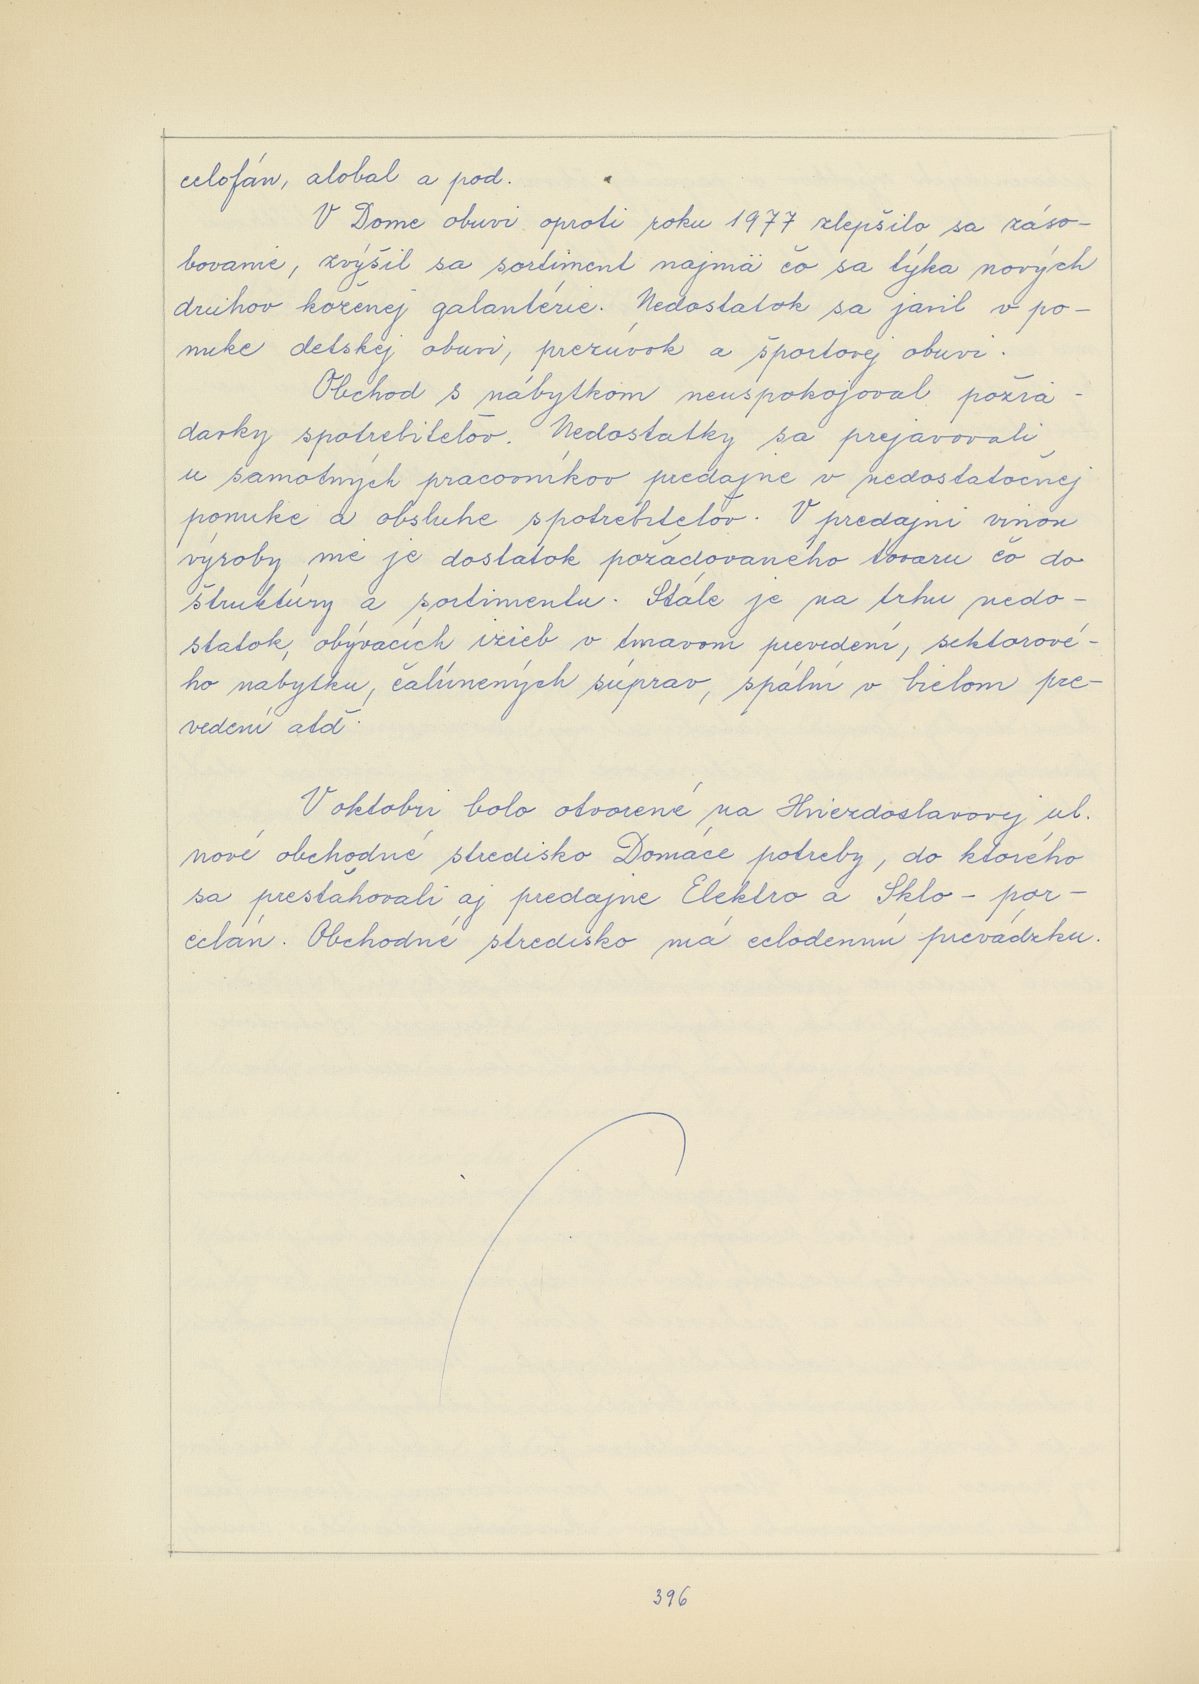 celofán, alobal a pod.
V Dome obuvi oproti roku 1977 zlepšilo sa záso-
bovanie, zvýšil sa sortiment najmä čo sa týka nových
druhov koženej galantérie. Nedostatok sa javil v po-
nuke detskej obuvi, prezúvok a športovej obuvi.
Obchod s nábytkom neuspokojoval požia-
davky spotrebiteľov. Nedostatky sa prejavovali
u samotných pracovníkov predajne v nedostatočnej
ponuke a obsluhe spotrebiteľov. V predajni
výroby nie je dostatok požadovaného tovaru čo do
štruktúry a sortimentu. Stále je na trhu nedo-
statok, obývacích izieb v tmavom prevedení, sektorové-
ho nabytku, čalúnených súprav, spální v bielom pre-
vedení atď.
V oktobri bolo otvorené na Hviezdoslavovej ul.
nové obchodné stredisko Domáce potreby, do ktorého
sa presťahovali aj predajne Elektro a Sklo - por-
celán. Obchodné stredisko má celodennú prevádzku.
396